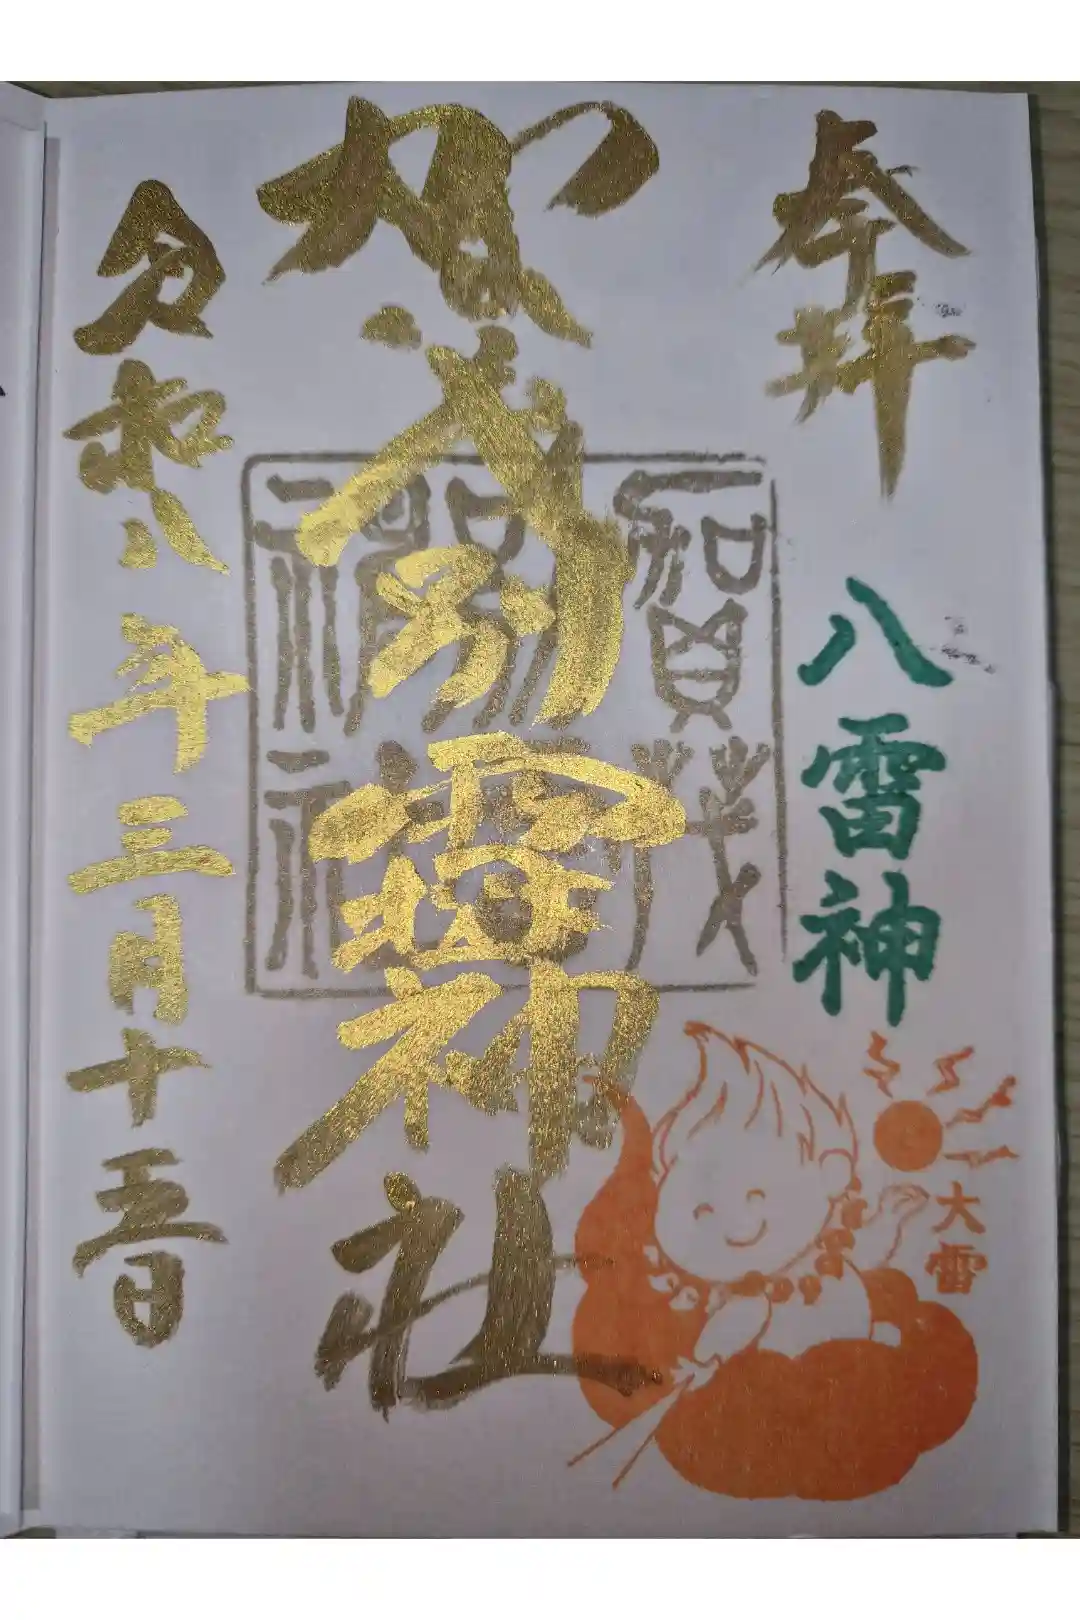 奉拝
八雷神
大雷
賀茂別雷神社
賀茂別雷神社
令和八年三月十五日